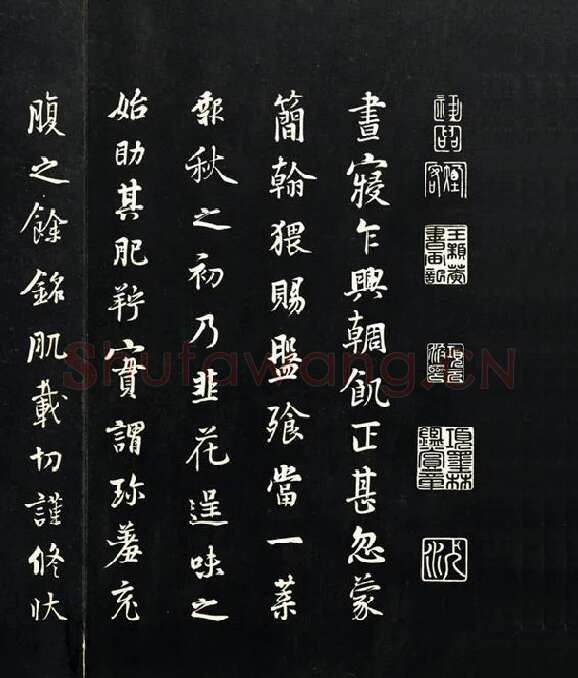 晝寢乍興輖飢正甚忽蒙
簡翰猥賜盤飧當一葉
報秋之初乃韭花逞味之
始助其肥羜實謂珍羞充
腹之餘銘肌載切謹修狀
項墨林鑑賞章
Shufawang.CN